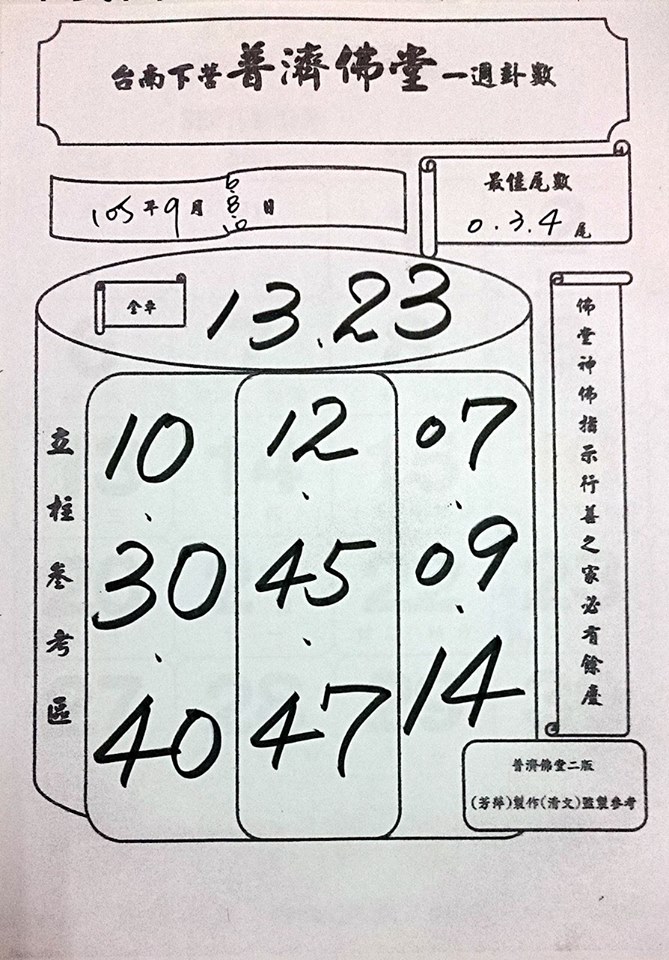 台南下苦普濟佛堂一週卦數
105年9月6.8.10日
最佳尾數
0.3.4尾
全章
13.23
立柱叄考區
10、30、40
12、45、47
07、09、14
佛堂神佛指示行善之家必有餘慶
普濟佛堂二版
(芳萍)製作(清文)監製參考